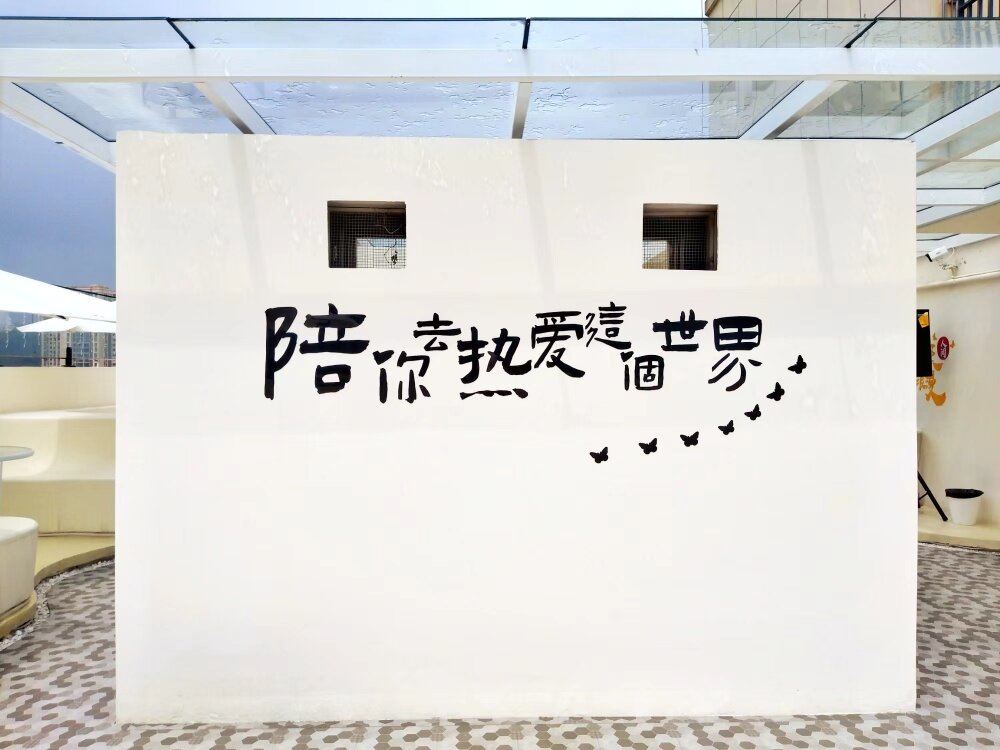 陪你去热爱這個世界